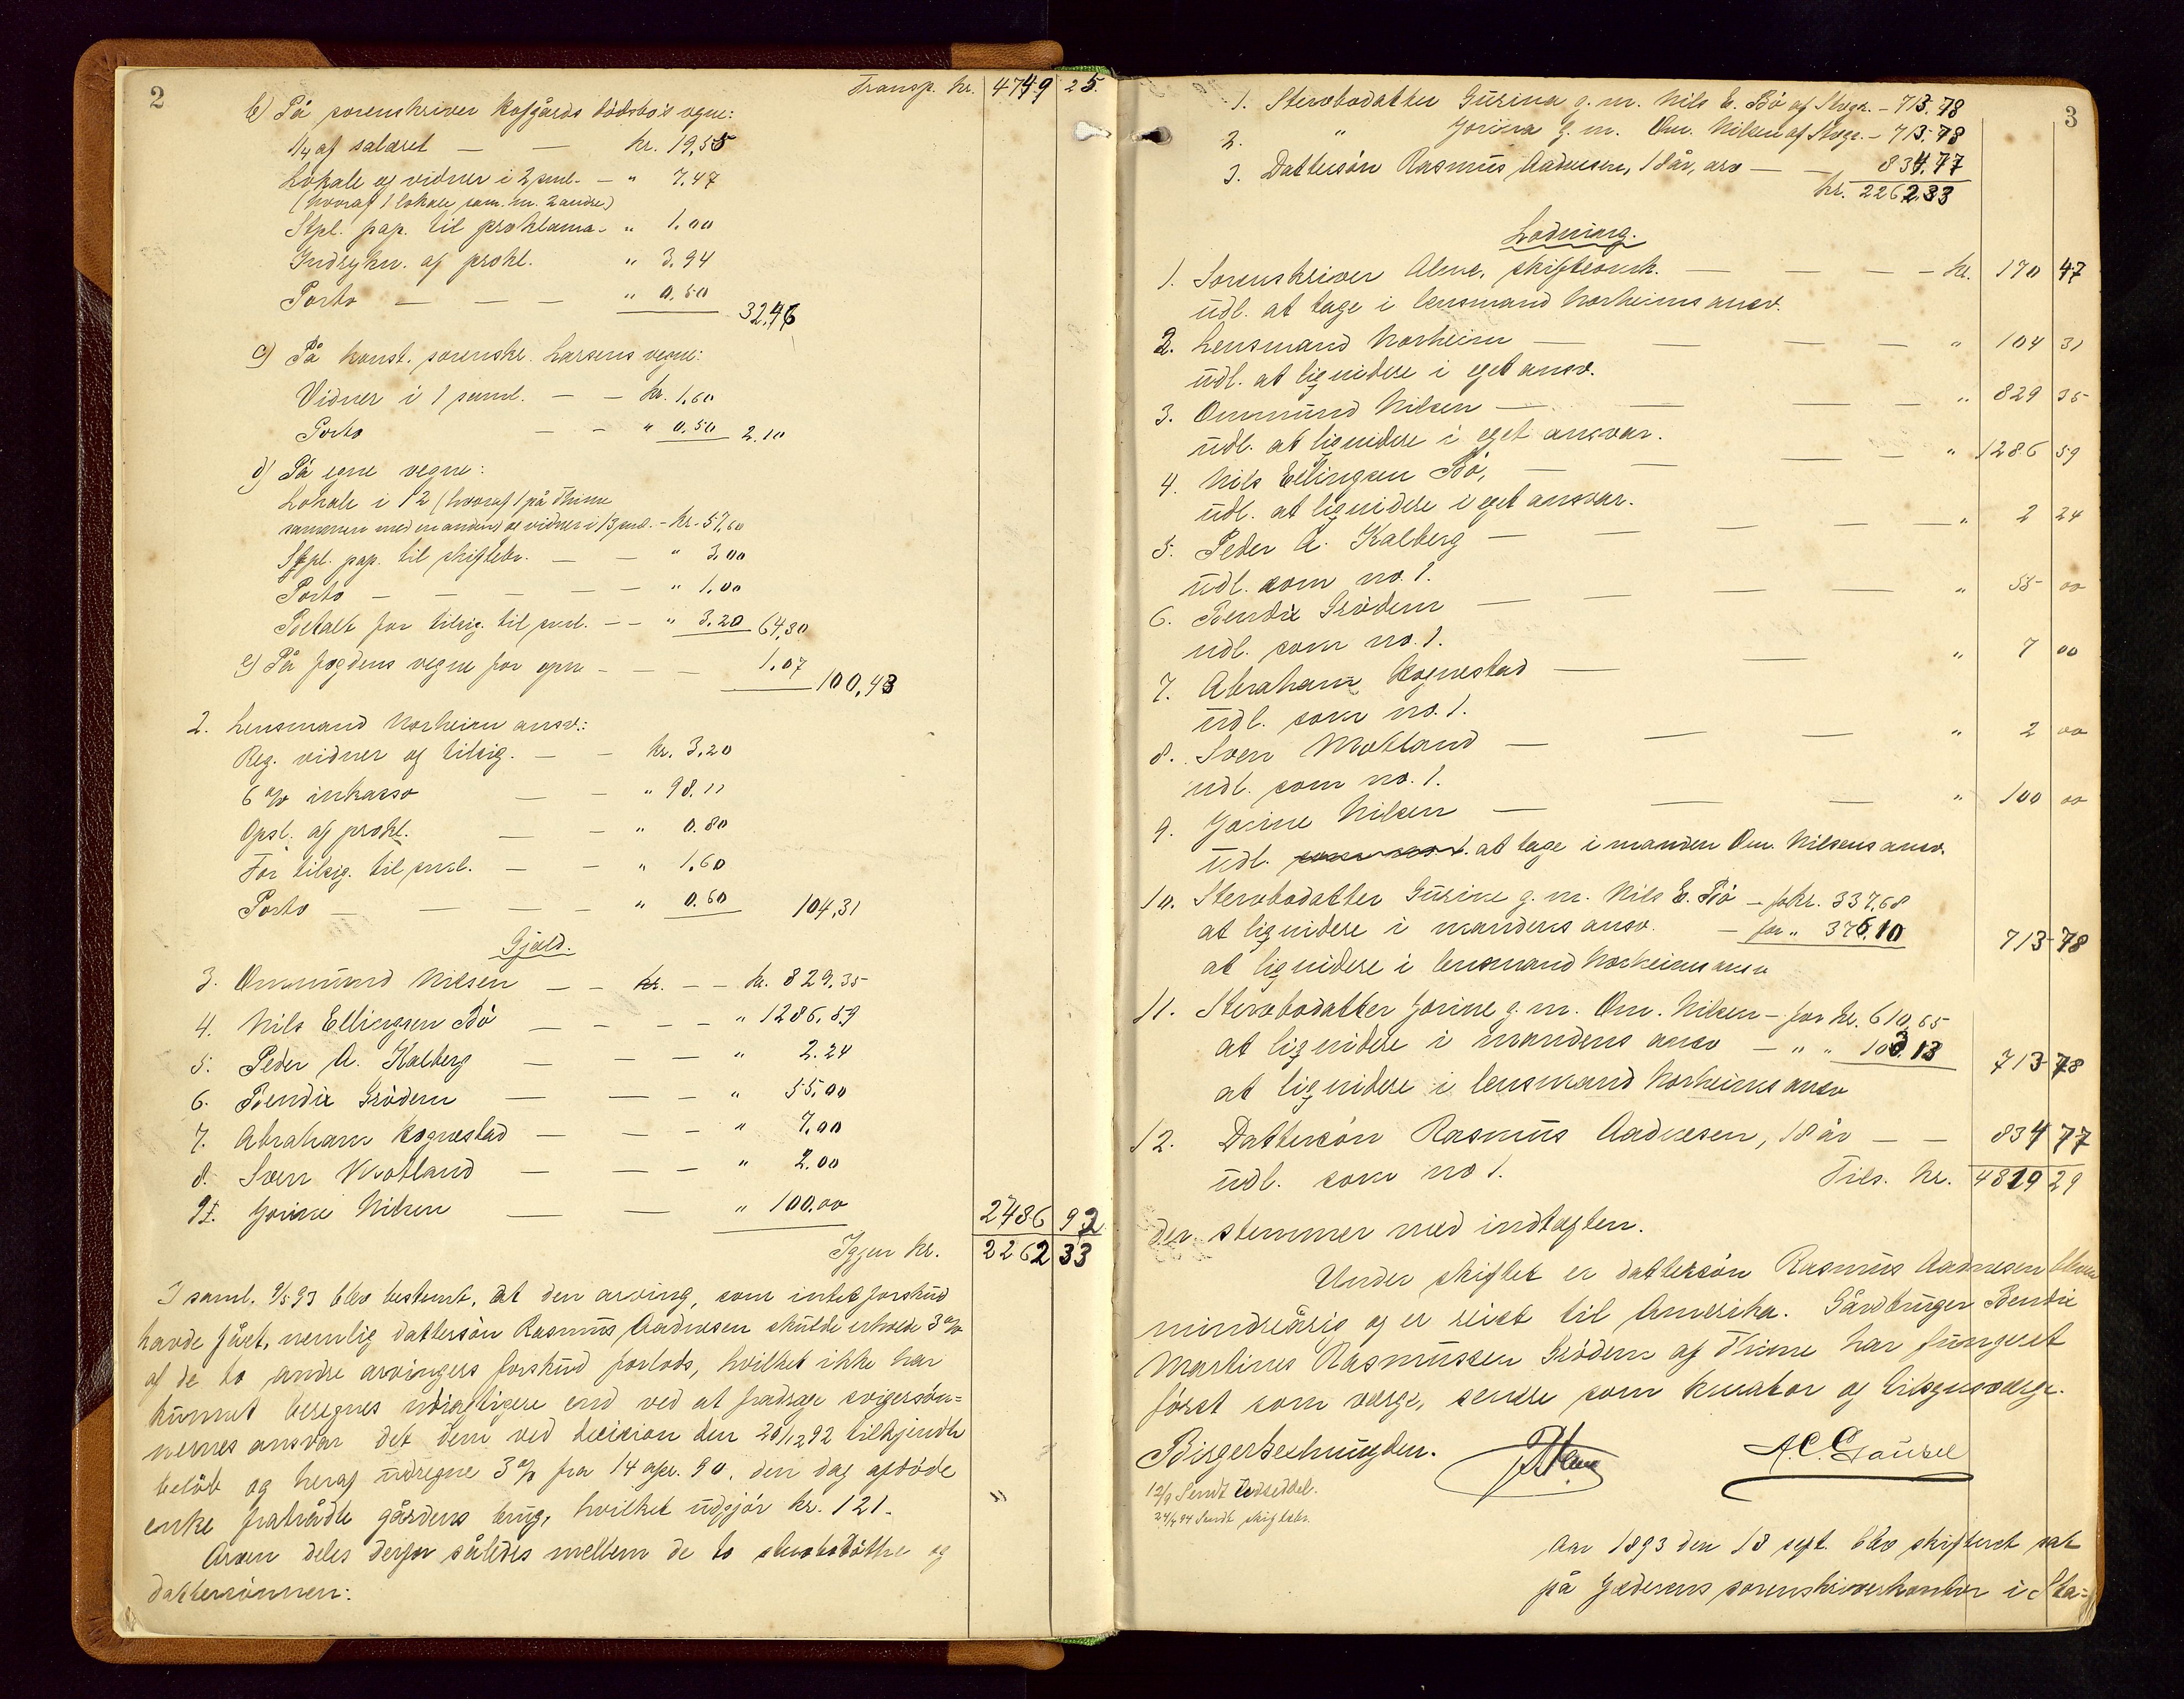 2
Transp. kr. 4749 25.
b) På sorenskriver Kofgårds dödsbo's vegne:
1/4 af salæret — — kr. 19,55
Lokale og vidner i 2 saml. — " 7,47
(hvoraf 1 lokale sam. m. 2 andre)
Stpl. pap. til proklama — " 1,00
Indrykn. af prokl. " 3,94
Porto — — — " 0,50 32,46
c) På konst. sorenskr. Larsens vegne:
Vidner i 1 saml. — — kr. 1,60
Porto — — " 0,50 2.10
d) På egne vegne:
Lokale i 12 (hvoraf 1 på Thime
sammen med en anden) og vidner i 13 saml. — kr. 57,60
Stpl. pap. til skiftebr. — — " 3,00
Porto — — — — — " 1,00
Betalt for tilsig. til saml. — — " 3,20 64,80
e) På fogdens vegne for opn — — — 1,07
100,43
2. Lensmand Norheim ansv.:
Reg. vidner og tilsig. — — kr. 3,20
6 % inkasso — — " 98.11
Opsl. af prokl. — — " 0.80
For tilsig. til saml. — — " 1,60
Porto — — — — " 0.60 104,31
Gjæld.
3. Ommund Nilsen — — kr. — — kr. 829,35
4. Nils Ellingsen Bö — — — — " 1286,59
5. Peder A. Kalberg — — — " 2.24
6. Bendix Grödem — — — " 55,00
7. Abraham Kognestad — — — " 7,00
8. Sven Motland — — — " 2.00
9. Jorine Nilsen — — " 100,00 2486 92
Igjen kr. 2262 33
I saml. 9/5 93 blev bestemt, at den arving, som intet forskud
havde fået, nemlig dattersön Rasmus Aadnesen skulde erholde 3 %
af de to andre arvingers forskud forlods, hvilket ikke har
kunnet beregnes nöiagtigere end ved at fradrage svigersön=
nernes ansvar det dem ved decision den 20/12 92 tilkjendte
belöb og heraf udregne 3 % fra 14 apr. 90, den dag afdöde
enke fratrådte gårdens brug, hvilket udgjör kr. 121.
Arven deles derfor således mellem de to stervbodöttre og
dattersönnen:
3
1. Stervbodatter Gurina g. m. Nils E. Bö af Skeje. — 713,78
2. " Jorina g. m. Om. Nilsen af Skeje. — 713,78
3. Dattersön Rasmus Aadnesen, 18 år, arv — — 834,77
kr. 2262,33
Lodning.
1. Sorenskriver Alme, skifteomk. — — — — kr. 170 47
udl. at tage i lensmand Norheims ansv.
2. Lensmand Norheim — — — — " 104 31
udl. at liquidere i eget ansv.
3. Ommund Nilsen — — — — " 829 35
udl. at liquidere i eget ansvar.
4. Nils Ellingsen Bö, — — — — " 1286 59
udl. at liquidere i eget ansvar.
5. Peder A. Kalberg — — — — " 2 24
udl. som no. 1.
6. Bendix Grödem — — — — " 55 00
udl. som no. 1.
7. Abraham Kognestad — — — " 7 00
udl. som no. 1.
8. Sven Motland — — — " 2 00
udl. som no. 1.
9. Jorine Nilsen — — — " 100 00
udl. som no 1. at tage i manden Om. Nilsens ansv.
10. Stervbodatter Gurine g. m. Nils E. Bö — for kr. 337,68
at liquidere i mandens ansv. — for " 376.10 713 78
at liquidere i lensmand Norheims ansv
11. Stervbodatter Jorine g. m. Om. Nilsen — for kr. 610,65
at liquidere i mandens ansv — " " 103.13 713 78
at liquidere i lensmand Norheims ansv
12. Dattersön Rasmus Aadnesen, 18 år — — 834 77
udl. som no 1. Tils. kr. 4819 29
der stemmer med indtægten.
Under skiftet er dattersön Rasmus Aadnesen bleven
mindreårig og er reist til Amerika. Gårdbruger Bendix
Martines Rasmussen Grödem af Thime har fungeret
först som værge, senere som kurator og tilsynsværge.
Birger Bechmugden.
A. C. Gausel
12/9 Sendt Lodseddel.
24/4 94 Sendt skiftebr.
Aar 1893 den 18 sept. blev skifteret sat
på Jæderens sorenskriverkontor i Sta=